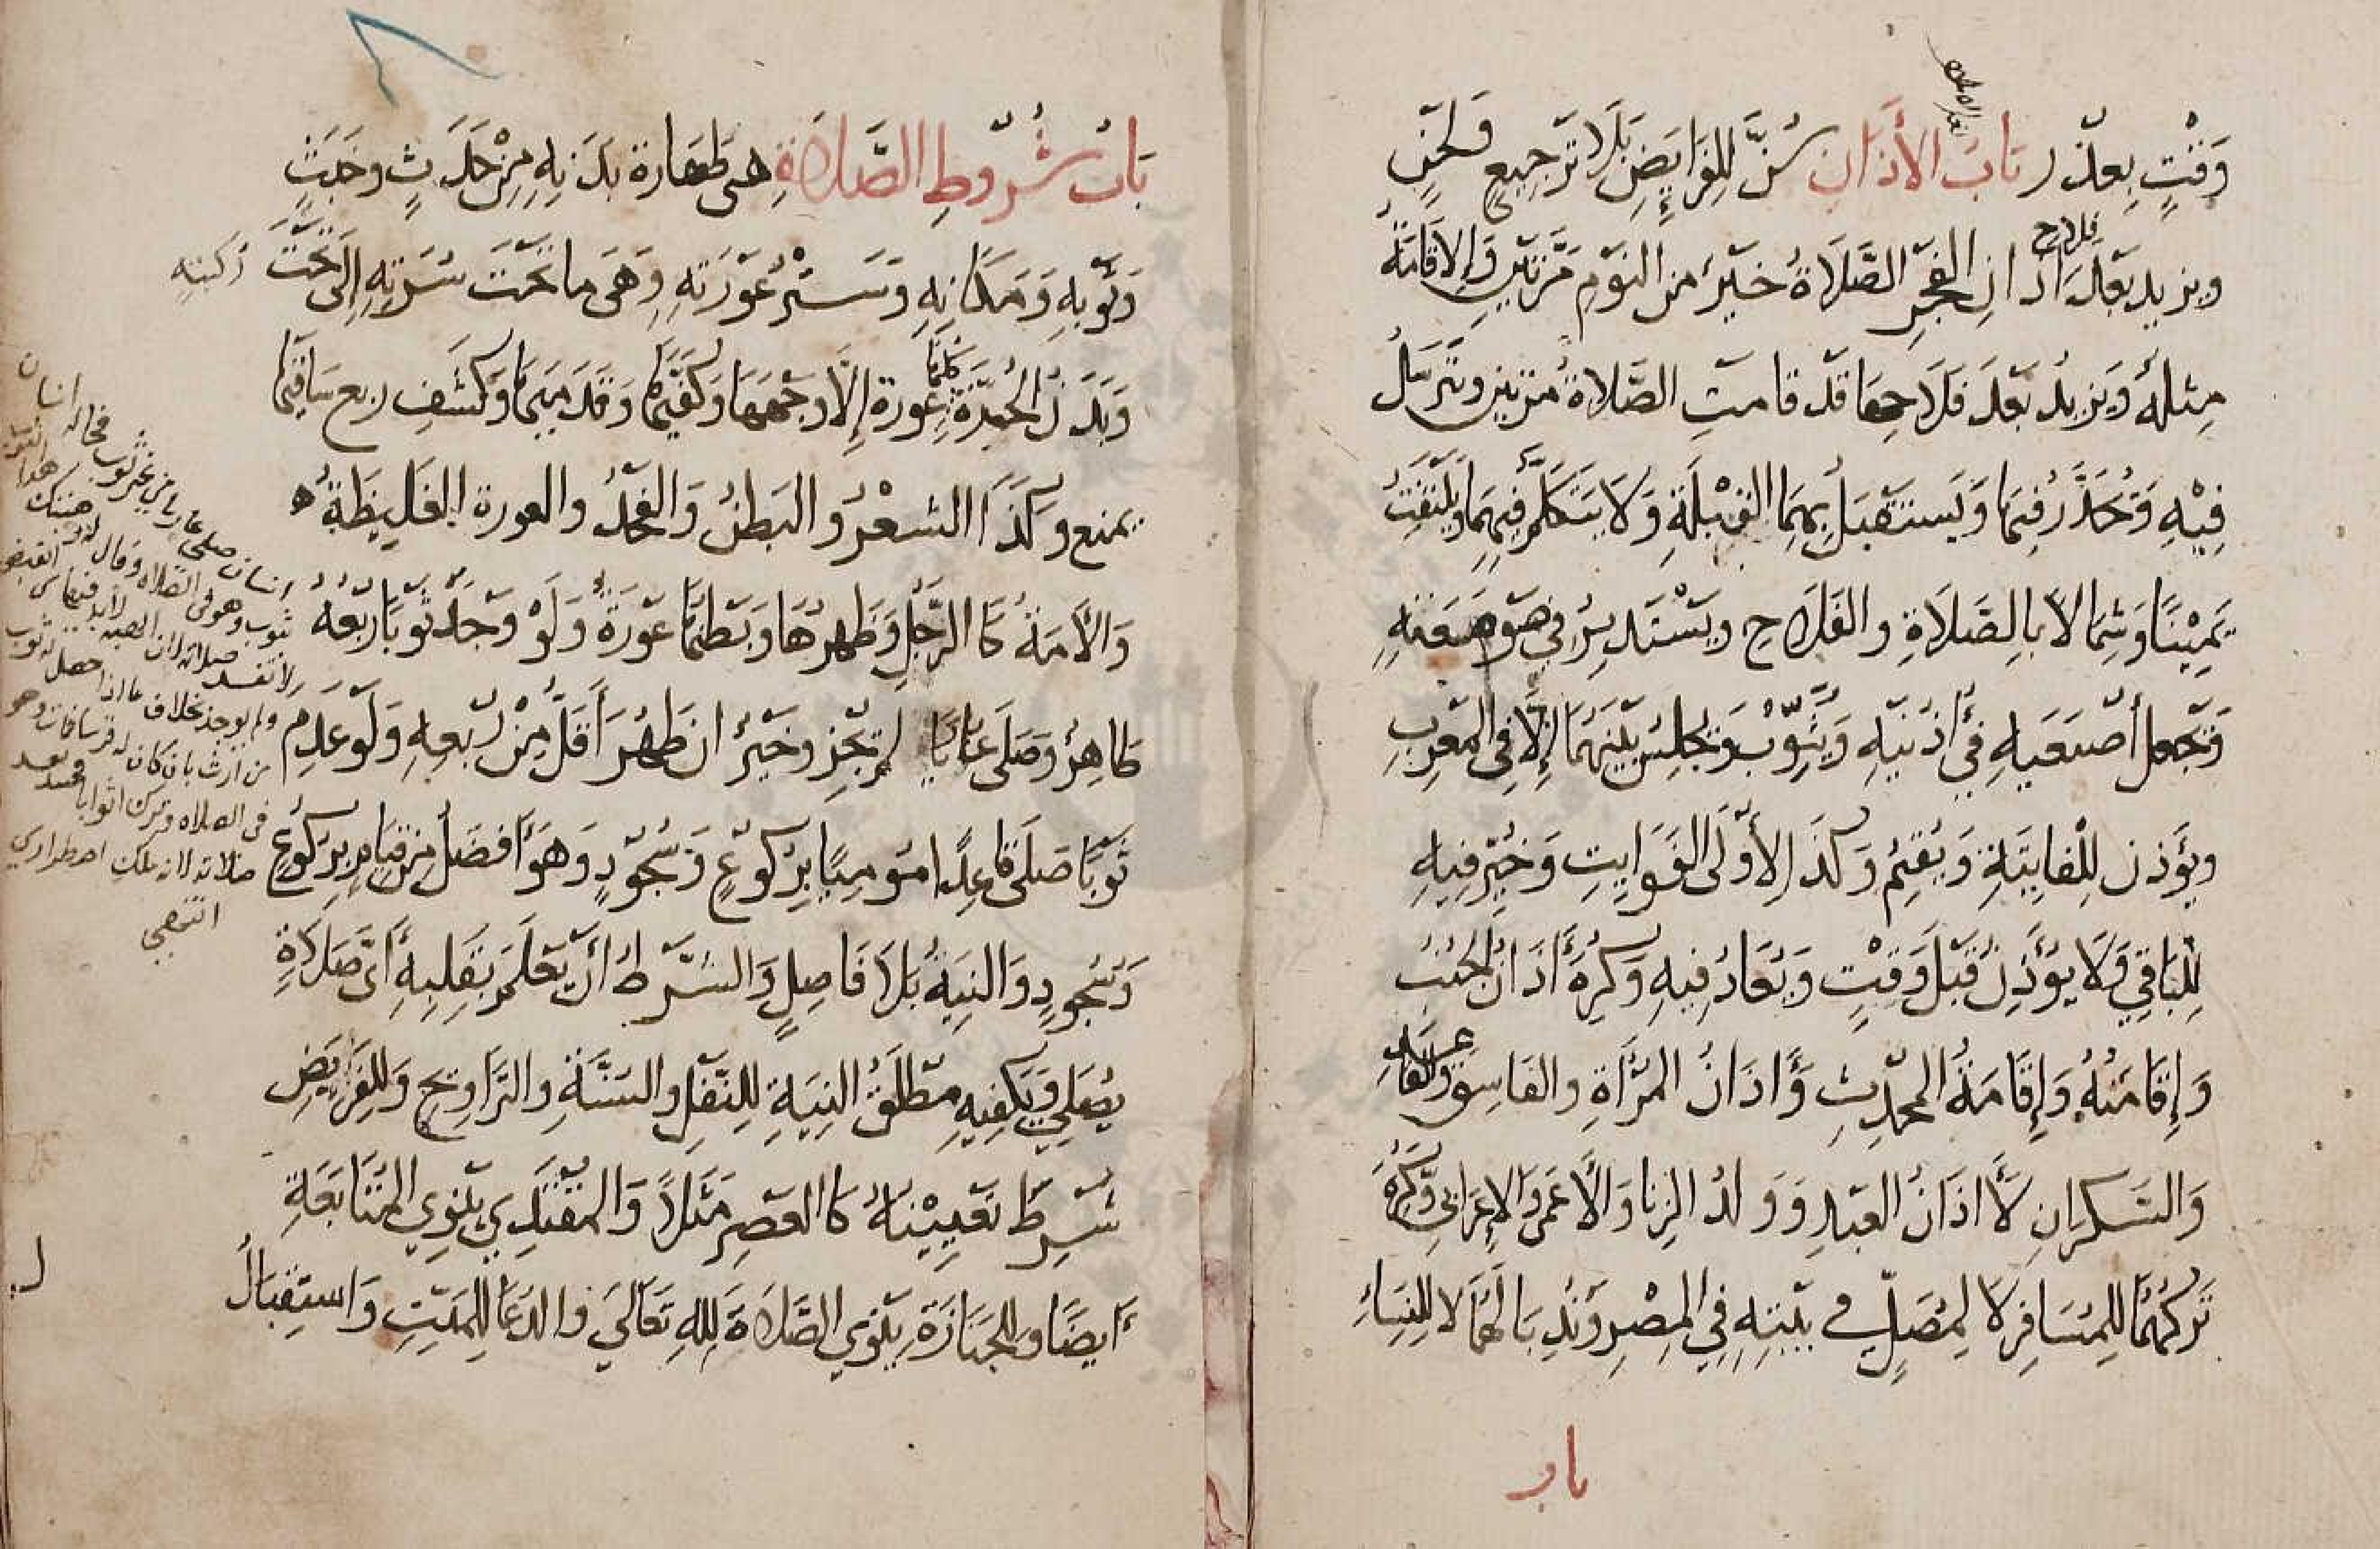 وَقْتٍ بِعذر بَابُ الأَذَانِ سُنَّ لِلْفَرَايِضِ بَلَا تَرْجِيعٍ وَلَحْنٍ
ويزيد بَعْدَ فلاح اذانِ الفجرِ الصَّلَاةُ خَيْرٌ من النوْمِ مَرَّتَيْنِ وَالإِقَامَةُ
مِثلهُ وَيَزيدُ بَعْدَ فَلَاحِهَا قد قامتِ الصَّلاةُ مرتين ويَتَرَسَّلُ
فِيْهِ وَيُحَدِّرُ فيهَا وَيَستَقبلُ بِهِمَا القِبْلَةِ وَلَا يَتَكَلَّمُ فِيهِمَا وَيَلْتَفِتُ
يَمِيْنًا وَشِمَالًا بِالصَّلَاةِ والفَلَاحِ ويَسْتَدِيرُ فِي صَوْمَعَتِهِ
وَيَجْعل أُصْبَعَيهِ فِي أُذنَيْهِ وَيُثَوِّبُ وَيَجْلِسُ بَيْنَهُمَا إِلَّا فِي المَغْرِبِ
ويؤَذن لِلْفَايِتَةِ وَيُقِيْمُ وَكَذَا لِأُوْلَى الفَوَايِتِ وَخُيِّرَ فِيهِ
لِلْبَاقِي وَلَا يُؤَذِنُ قَبْلَ وَقْتٍ وَيُعَادُ فِيهِ وَكُرِهَ أَذَانُ الجُنُبِ
وَإِقَامَتُهُ وَإِقَامَةُ المُحْدِثِ وَأَذَانُ المَرْأَةِ والفَاسِقِ والقَاعِدِ
وَالسَّكرَانِ لَا اذَانُ العَبْدِ وَوَلدُ الزِنَا وَالْأَعمَى وَالْاعرَابِي وَكُرِهَ
تَرْكُهُمَا لِلمُسَافِرِ لَا لِمُصَلٍّ فِي بَيْتِهِ فِي المِصْرِ وَنُدِبَا لَهُمَا لَا لِلنِّسَاءِ
باب
بَابُ شُرُوطِ الصَّلَاةِ هي طَهَارة بَدَنِهِ مِنْ حَدَثٍ وخَبَثٍ
وَثَوْبِهِ وَمَكَانِهِ وَسَتْرُ عَوْرَتِهِ وَهَى مَا تَحْتَ سُرَّتِهِ إِلَى تَحْتَ رُكبتِهِ
وَبَدَنُ الحُرَّةِ كلُّهَا عورة إِلَّا وَجْهَهَا وَكَفَّيْهَا وَقَدَمَيهَا وَكَشْفُ ربع سَاقِهَا
يمنع وَكَذَا الشعْرُ والبَطنُ وَالفَخْذُ والعورة الغَلِيظَةُ
وَالأَمَةُ كَالرَّجُلِ وَظَهرُهَا وَبَطنُهَا عَوْرَةٌ وَلَوْ وَجَدَ ثَوْبًا رَبْعُهُ
طَاهِرٌ وَصَلَى عَارِيا لم يَجُز وخيِّرَ ان طَهُرَ أَقَلُّ مِنْ رُبعِهِ وَلَوْ عَدِمَ
ثَوْبًا صَلَى قَاعِدًا مُومِيًا بِرُكوعٍ وَسُجُودٍ وَهُوَ أَفضَلُ مِنْ قِيَامٍ بِرُكوعٍ
وَسُجُودٍ وَالنِيَةُ بَلَا فَاصِلٍ وَالشَّرطُ أَنْ يَعْلَمَ بِقَلبِهِ أَيَّ صَلَاةٍ
يُصَلِي وَيَكْفِيهِ مُطْلَقُ النِيَةِ لِلنَّفْلِ والسُّنَّةِ والتَرَاوِيحِ وَلِلفَرَايِضِ
شُرِطَ تَعْيِيْنُهُ كَالعَصْرِ مَثَلًا وَالمُقْتَدِي يَنْوِي المُتَابَعَةِ
أَيضًا وَلِلجَنَازَةِ يَنْوِي الصَّلَاةَ لِلهِ تَعَالَي والدُعَا لِلمَيّتِ وَاستِقْبَالُ
انسان صلى عاريا من غير ثوب فجاله انسان
بثوب وهو فى الصلاه وقال له
لا تفسد صلاته لان
ولم يوجد بخلاف ما اذا حصل له ثوب
من ارث بان كان
فى الصلاه وترك اثوابا
صلاته لانه ملك اضطراري
انتهى